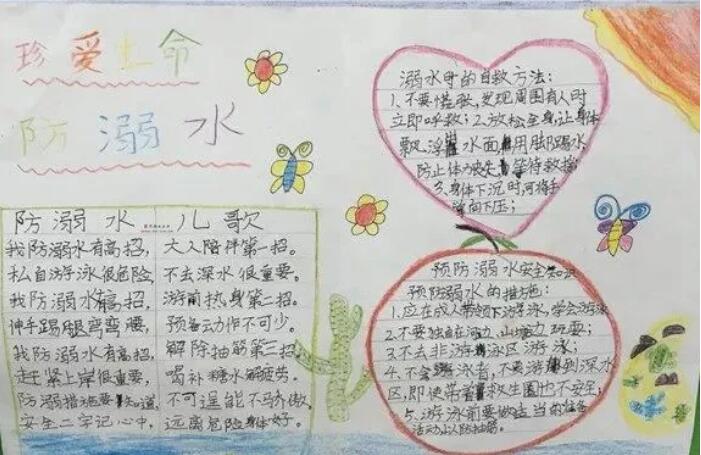 珍爱生命
防溺水
防溺水儿歌
我防溺水有高招, 大人陪伴第一招。
私自游泳很危险, 不去深水很重要。
我防溺水有高招, 游前热身第二招。
伸手踢腿弯弯腰, 预备动作不可少。
我防溺水有高招, 解除抽筋第三招。
赶紧上岸很重要, 喝补糖水解疲劳。
防溺措施要知道, 不可逞能不骄傲。
安全二字记心中, 远离危险身体好。
溺水时的自救方法:
1、不要慌张,发现周围有人时
立即呼救;2、放松全身,让身体
飘浮水面,用脚踢水,
防止体力丧失,等待救援
3、身体下沉时,可将手
向下压;
预防溺水安全知识
预防溺水的措施:
1、应在成人带领下游泳,学会游泳
2、不要独自在河边、山塘边玩耍;
3、不去非游泳区游泳;
4、不会游泳者,不要游到深水
区,即使带着救生圈也不安全;
5、游泳前要做适当的准备
活动以防抽筋。